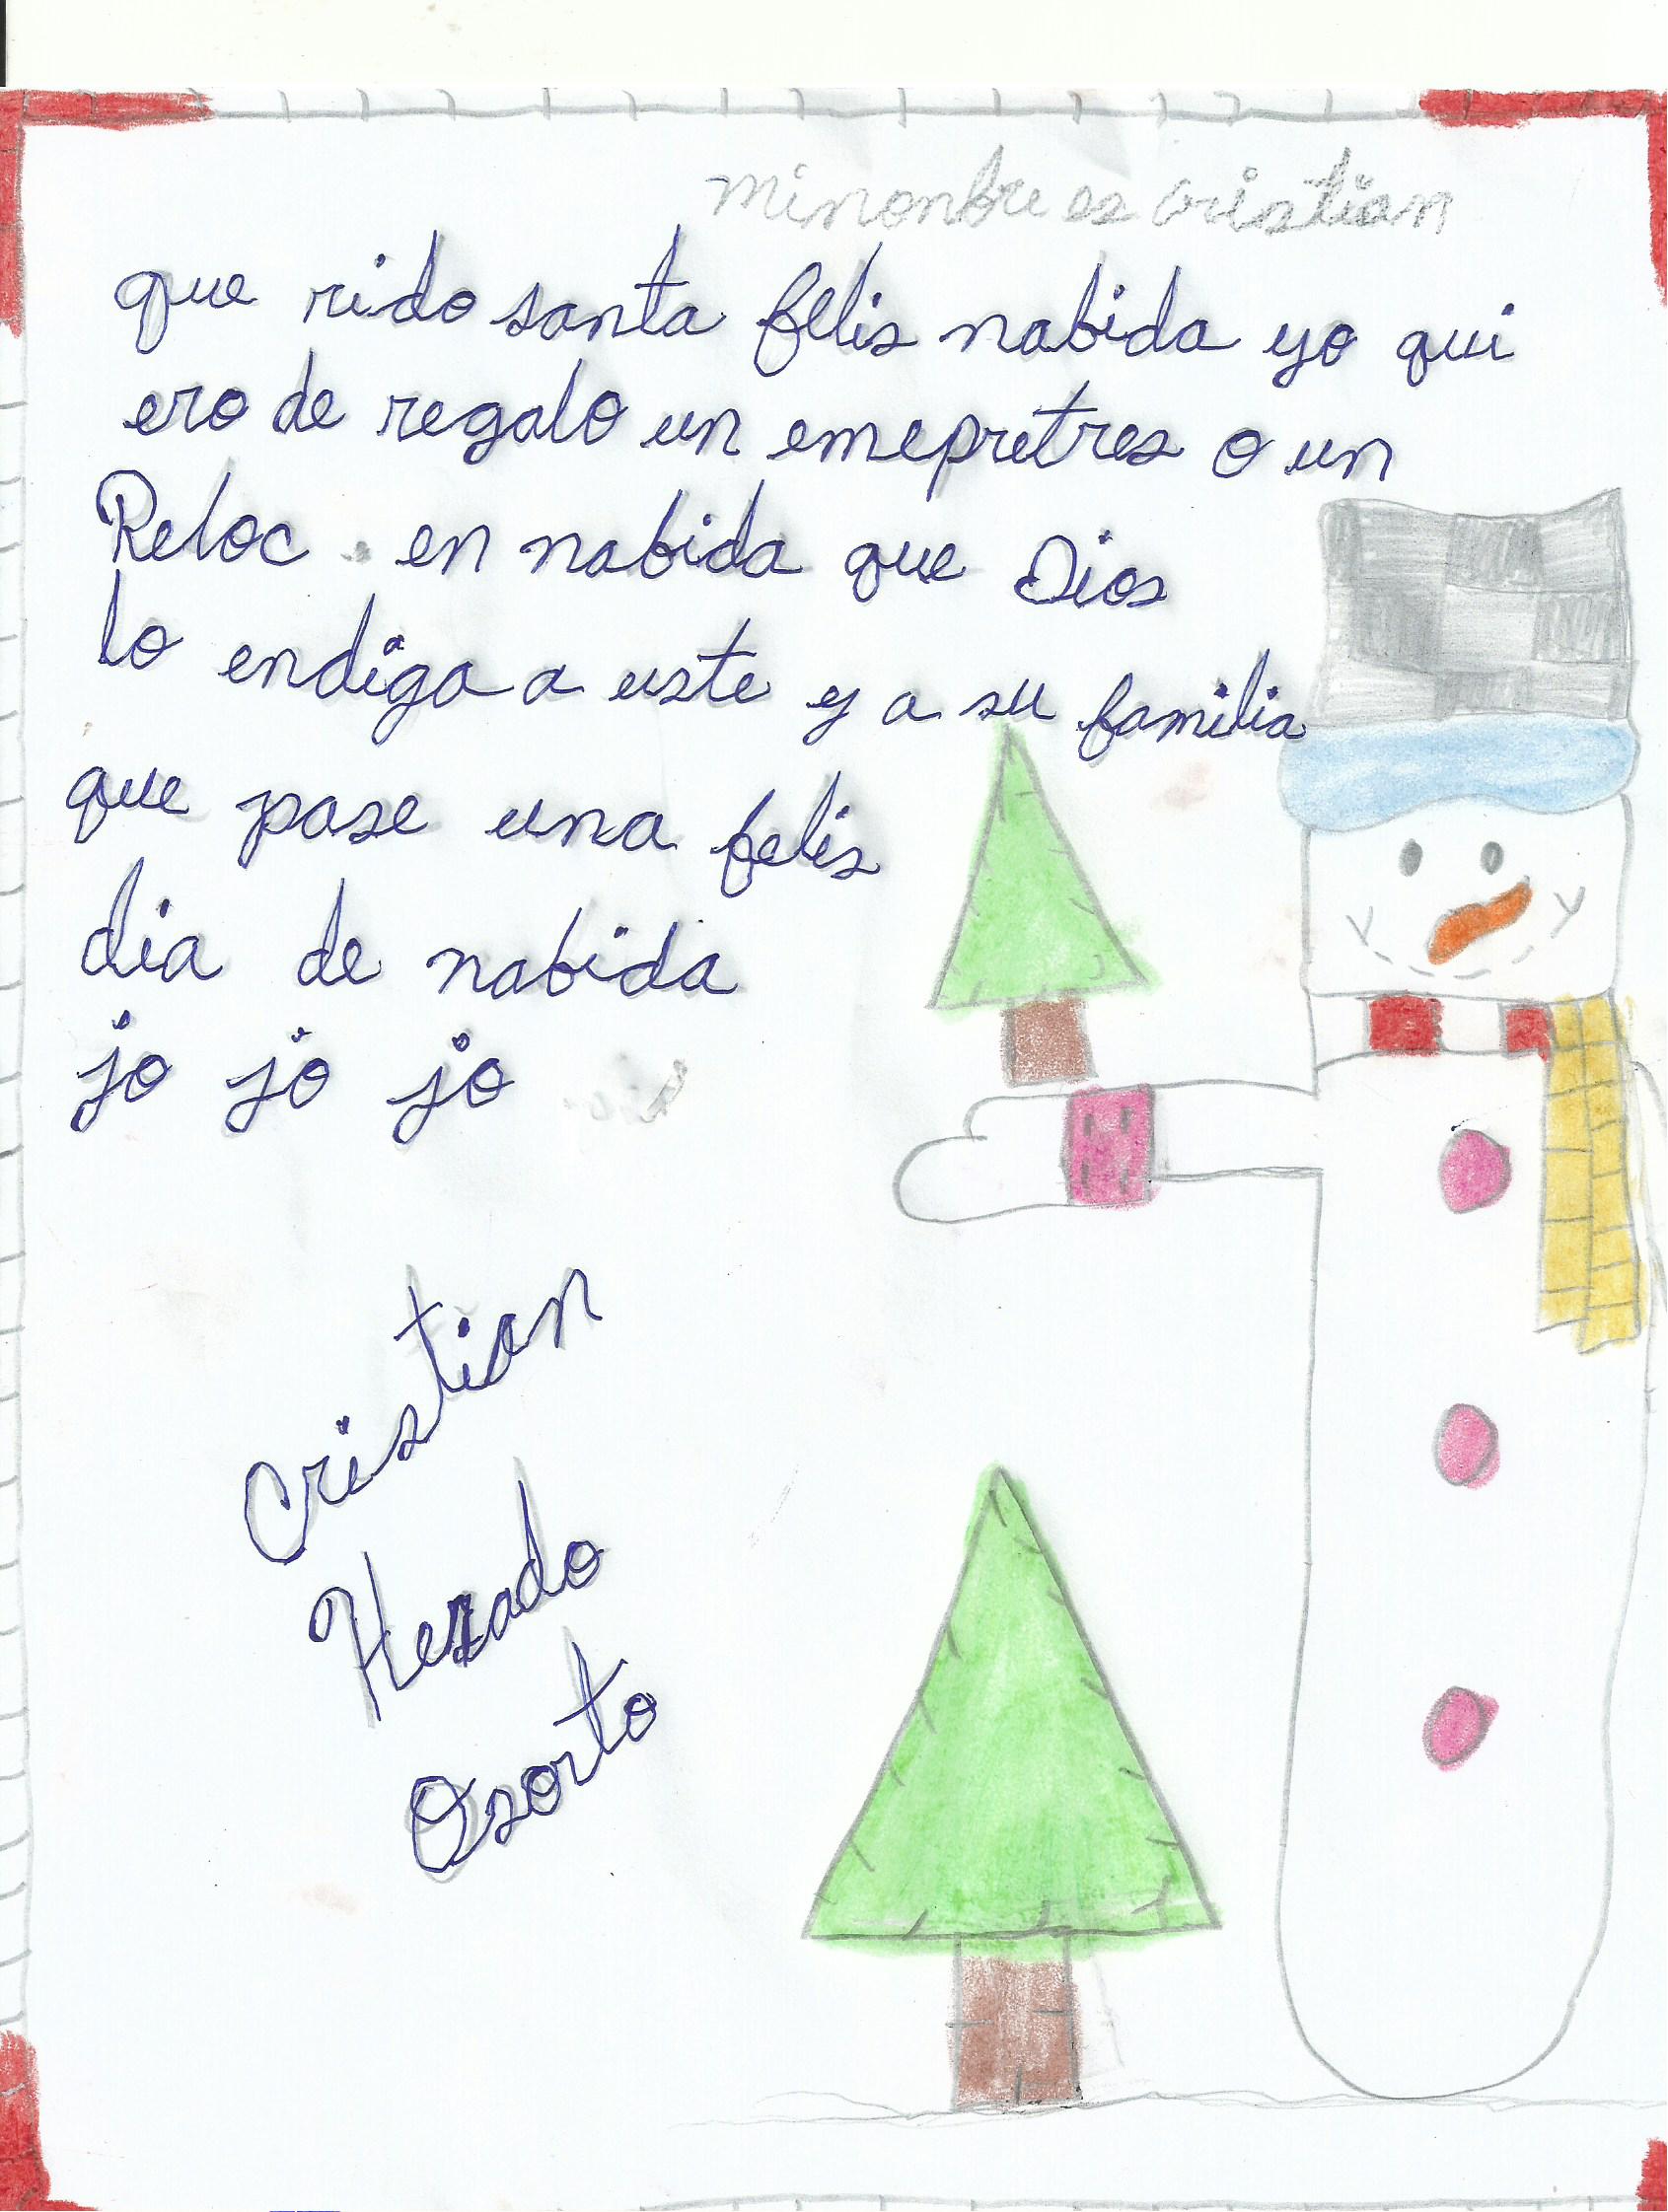 minonbre es cristian
que rido santa felis nabida yo qui
ero de regalo un emepretres o un
Reloc. en nabida que Dios
lo endiga a uste y a su familia
que pase una felis
dia de nabida
jo jo jo
Cristian
Osorto